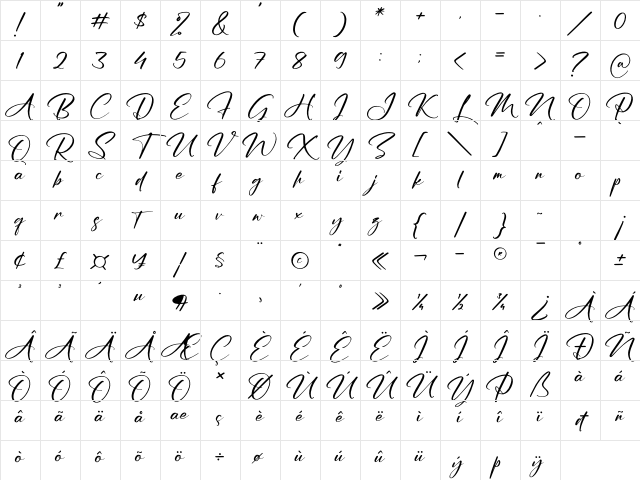 ! " # $ % & ' ( ) * + , – . / 0
1 2 3 4 5 6 7 8 9 : ; < = > ? @
A B C D E F G H I J K L M N O P
Q R S T U V W X Y Z [ \ ] ^ –
a b c d e f g h i j k l m n o p
q r s T u v w x y z { | } ~ ¡
¢ £ ¤ ¥ ¦ § ¨ © « ¬ – ® ¯ ° ±
² ³ ´ u ¶ · ¸ ¹ º » ¼ ½ ¾ ¿ À Á
Â Ã Ä Å Æ Ç È É Ê Ë Ì Í Î Ï Ð Ñ
Ò Ó Ô Õ Ö × Ø Ù Ú Û Ü Ý Þ ß à á
â ã ä å ae ç è é ê ë ì í î ï đ ñ
ò ó ô õ ö ÷ ø ù ú û ü ý þ ÿ